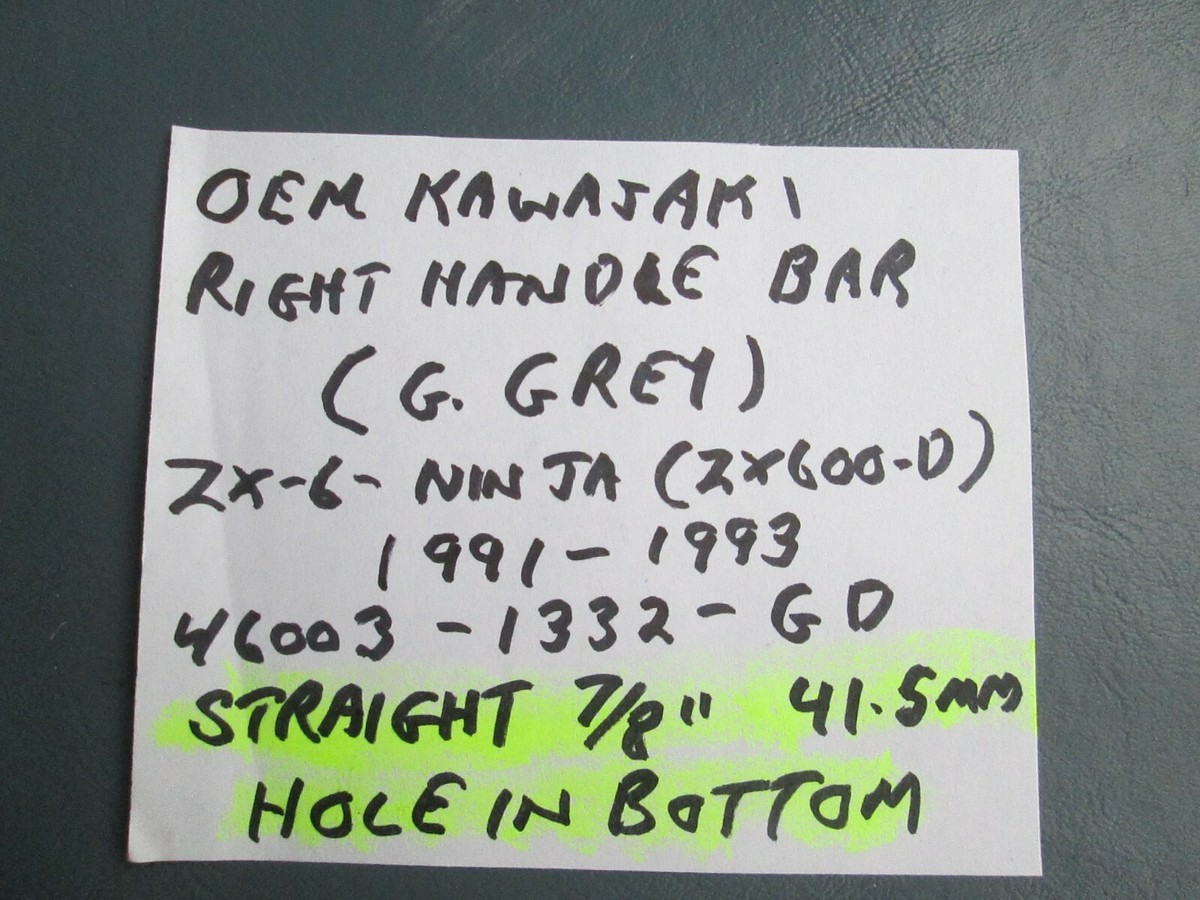 OEM KAWASAKI
RIGHT HANDLE BAR
(G. GREY)
ZX-6- NINJA (ZX600-D)
1991-1993
46003-1332-GD
STRAIGHT 7/8" 41.5MM
HOLE IN BOTTOM